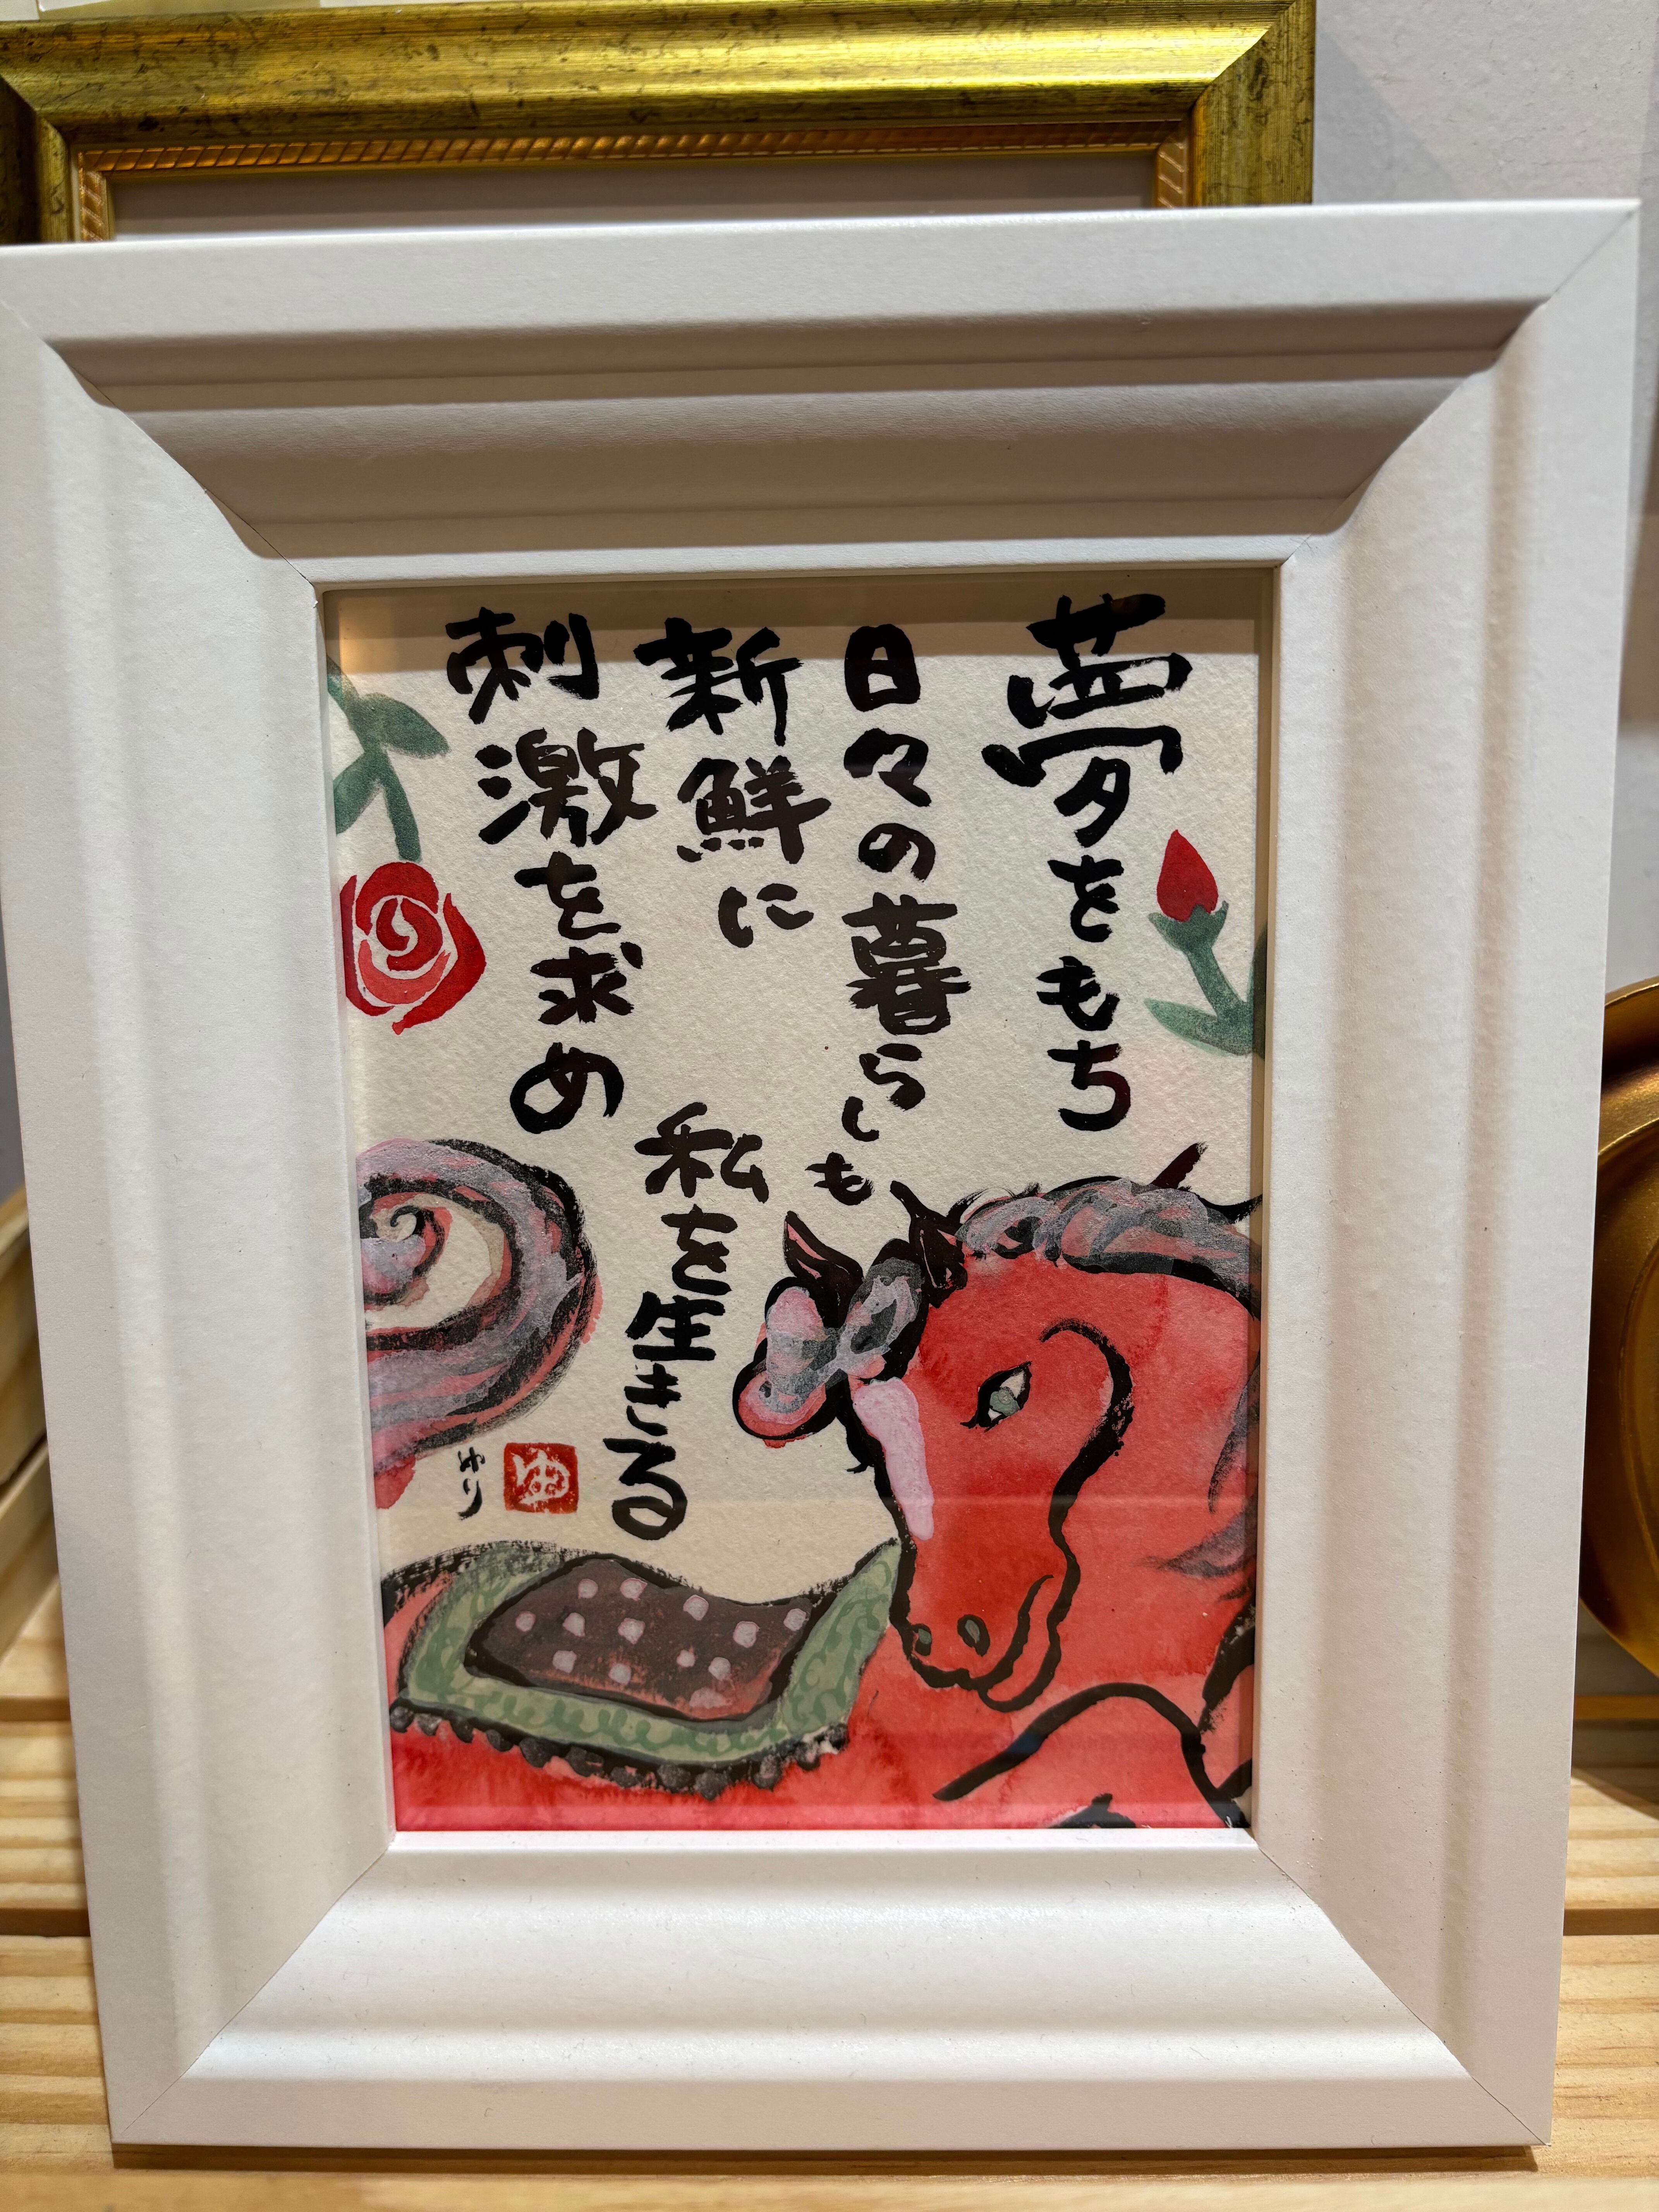 夢をもち
日々の暮らしも
新鮮に
刺激を求め
私を生きる
ゆり